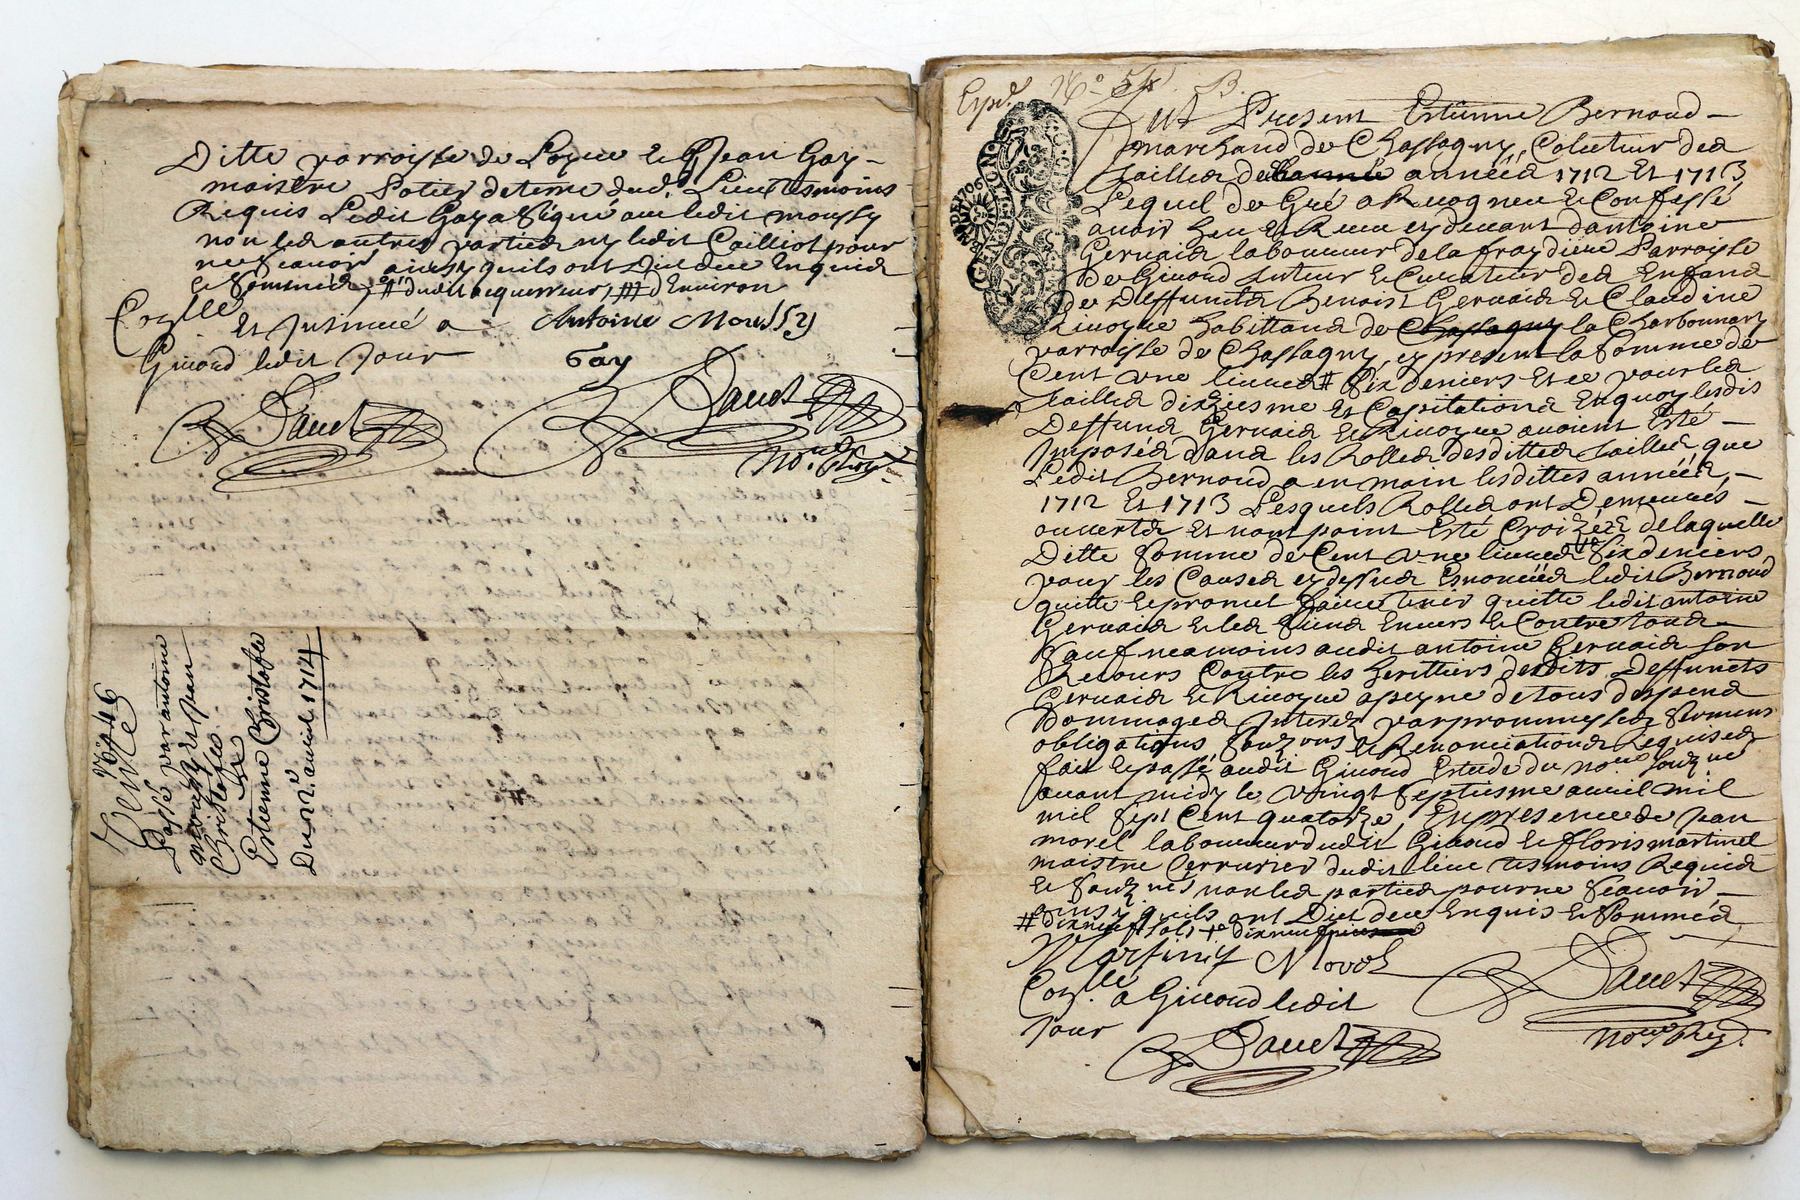 Ditte parroisse de Loyre & Sr Jean Gay
maistre Potier de terre dud. Lieu tesmoins
Requis Ledit Gay a signé avec ledit moussy
non les autres parties ny ledit Cailliot pour
ne scavoir ainsy quils ont Dit de ce Enquis
& sommés # dudit acquerreur, ## d'Environ
Et Insinué a
Antoine Moussy
Givord ledit Jour
Gay
Dauet
Dauet
Nore Roy.
No 46
Vente
Passé par antoine
moussy Et Jean
Christofle
a
Estienne Cristofle
Du avril 1714
Expé. No 54 B.
GEN.DE LYON
Fut Present Estienne Bernoud
marchand de Chassagny, Colecteur des
tailles de année années 1712 Et 1713
Lequel de Gré a Recogneu & Confessé
avoir heu Et Receu cy devant d'antoine
Gervais laboureur de la fraydiere Parroisse
de Givord tuteur & Curateur des Enfans
de Deffuncts Benoist Gervais & Claudine
Rivoyre habittans de Chassagny la Charbonnary
parroisse de Chassagny, cy present la somme de
Cent une livres # six deniers Et ce pour les
tailles dixiesme Et Capitations En quoy lesdis
Deffuns Gervais & Rivoyre avoient Esté
Imposés dans les Rolles desdittes tailles, que
Ledit Bernoud a en main lesdittes années,
1712 Et 1713 Lesquels Rolles ont Demeurés
ouvertes Et n'ont point Esté Croizéz de laquelle
Ditte somme de Cent une livres six deniers
pour les Causes cy dessus Enoncéés ledit Bernoud
quitte & promet faire tenir quitte ledit antoine
Gervais & les siens Envers & Contre tous
sauf neamoins audit antoine Gervais son
Recours Contre les heritiers desdits Deffuncts
Gervais & Rivoyre a peyne de tous despens
Dommages Interez par prommesses sermens
obligations, soubz ons & Renonciations Requises
fait & passé audit Givord Estude du nore soubz né
avant midy le vingt septiesme avril mil
mil sept Cent quatorze, En presence de Jean
morel laboureur dudit Givord & floris martinel
maistre serrurier dudit lieu tesmoins Requis
& soubz nés non les parties pour ne scavoir
ainsy quils ont Dit de ce Enquis & Sommés
# dix neuf sols
Martinel Morel
a Givord ledit
Dauet
Jour
Dauet
Nore Roy.